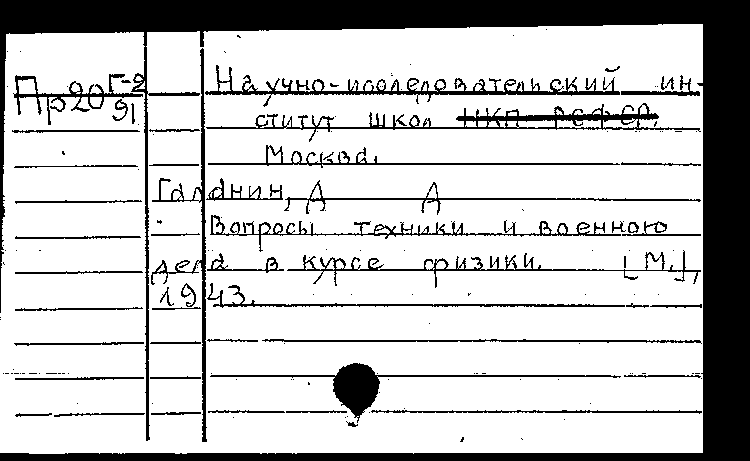 Пр20 Г-2
91
Научно-исследовательский ин-
ститут школ НКП РСФСР.
Москва.
Галанин, Д Д
Вопросы техники и военного
дела в курсе физики. [М.],
1943.